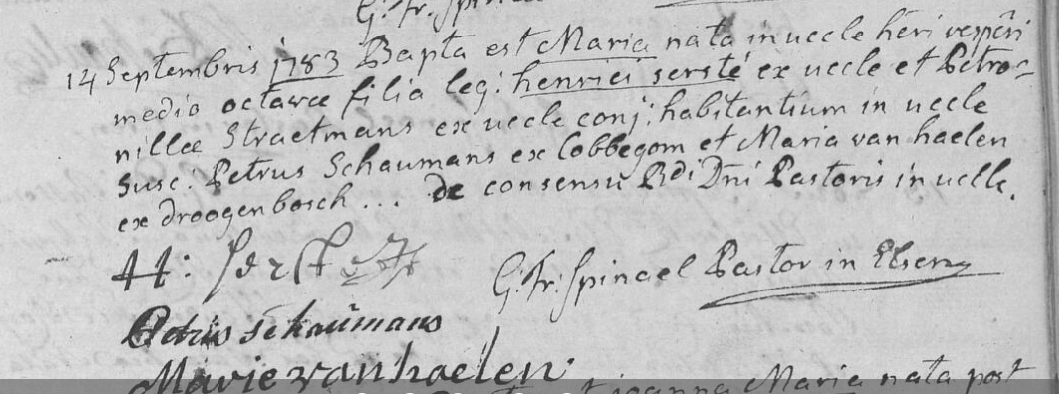 G. Fr. Spinael
14 Septembris 1783 Bapta est Maria nata in uccle heri vesperi
medio octavæ filia leg: henrici sersté ex uccle et Petro-
nillæ Straetmans ex uccle conj: habitantium in uccle
susc: Petrus Schaumans ex Cobbegom et Maria van haelen
ex droogenbosch ... de consensu Rdi Dni Pastoris in uccle.
H: Serste
G: Fr: Spinael Pastor in Elsen
Petrus schaumans
Marie van haelen
joanna Maria nata post